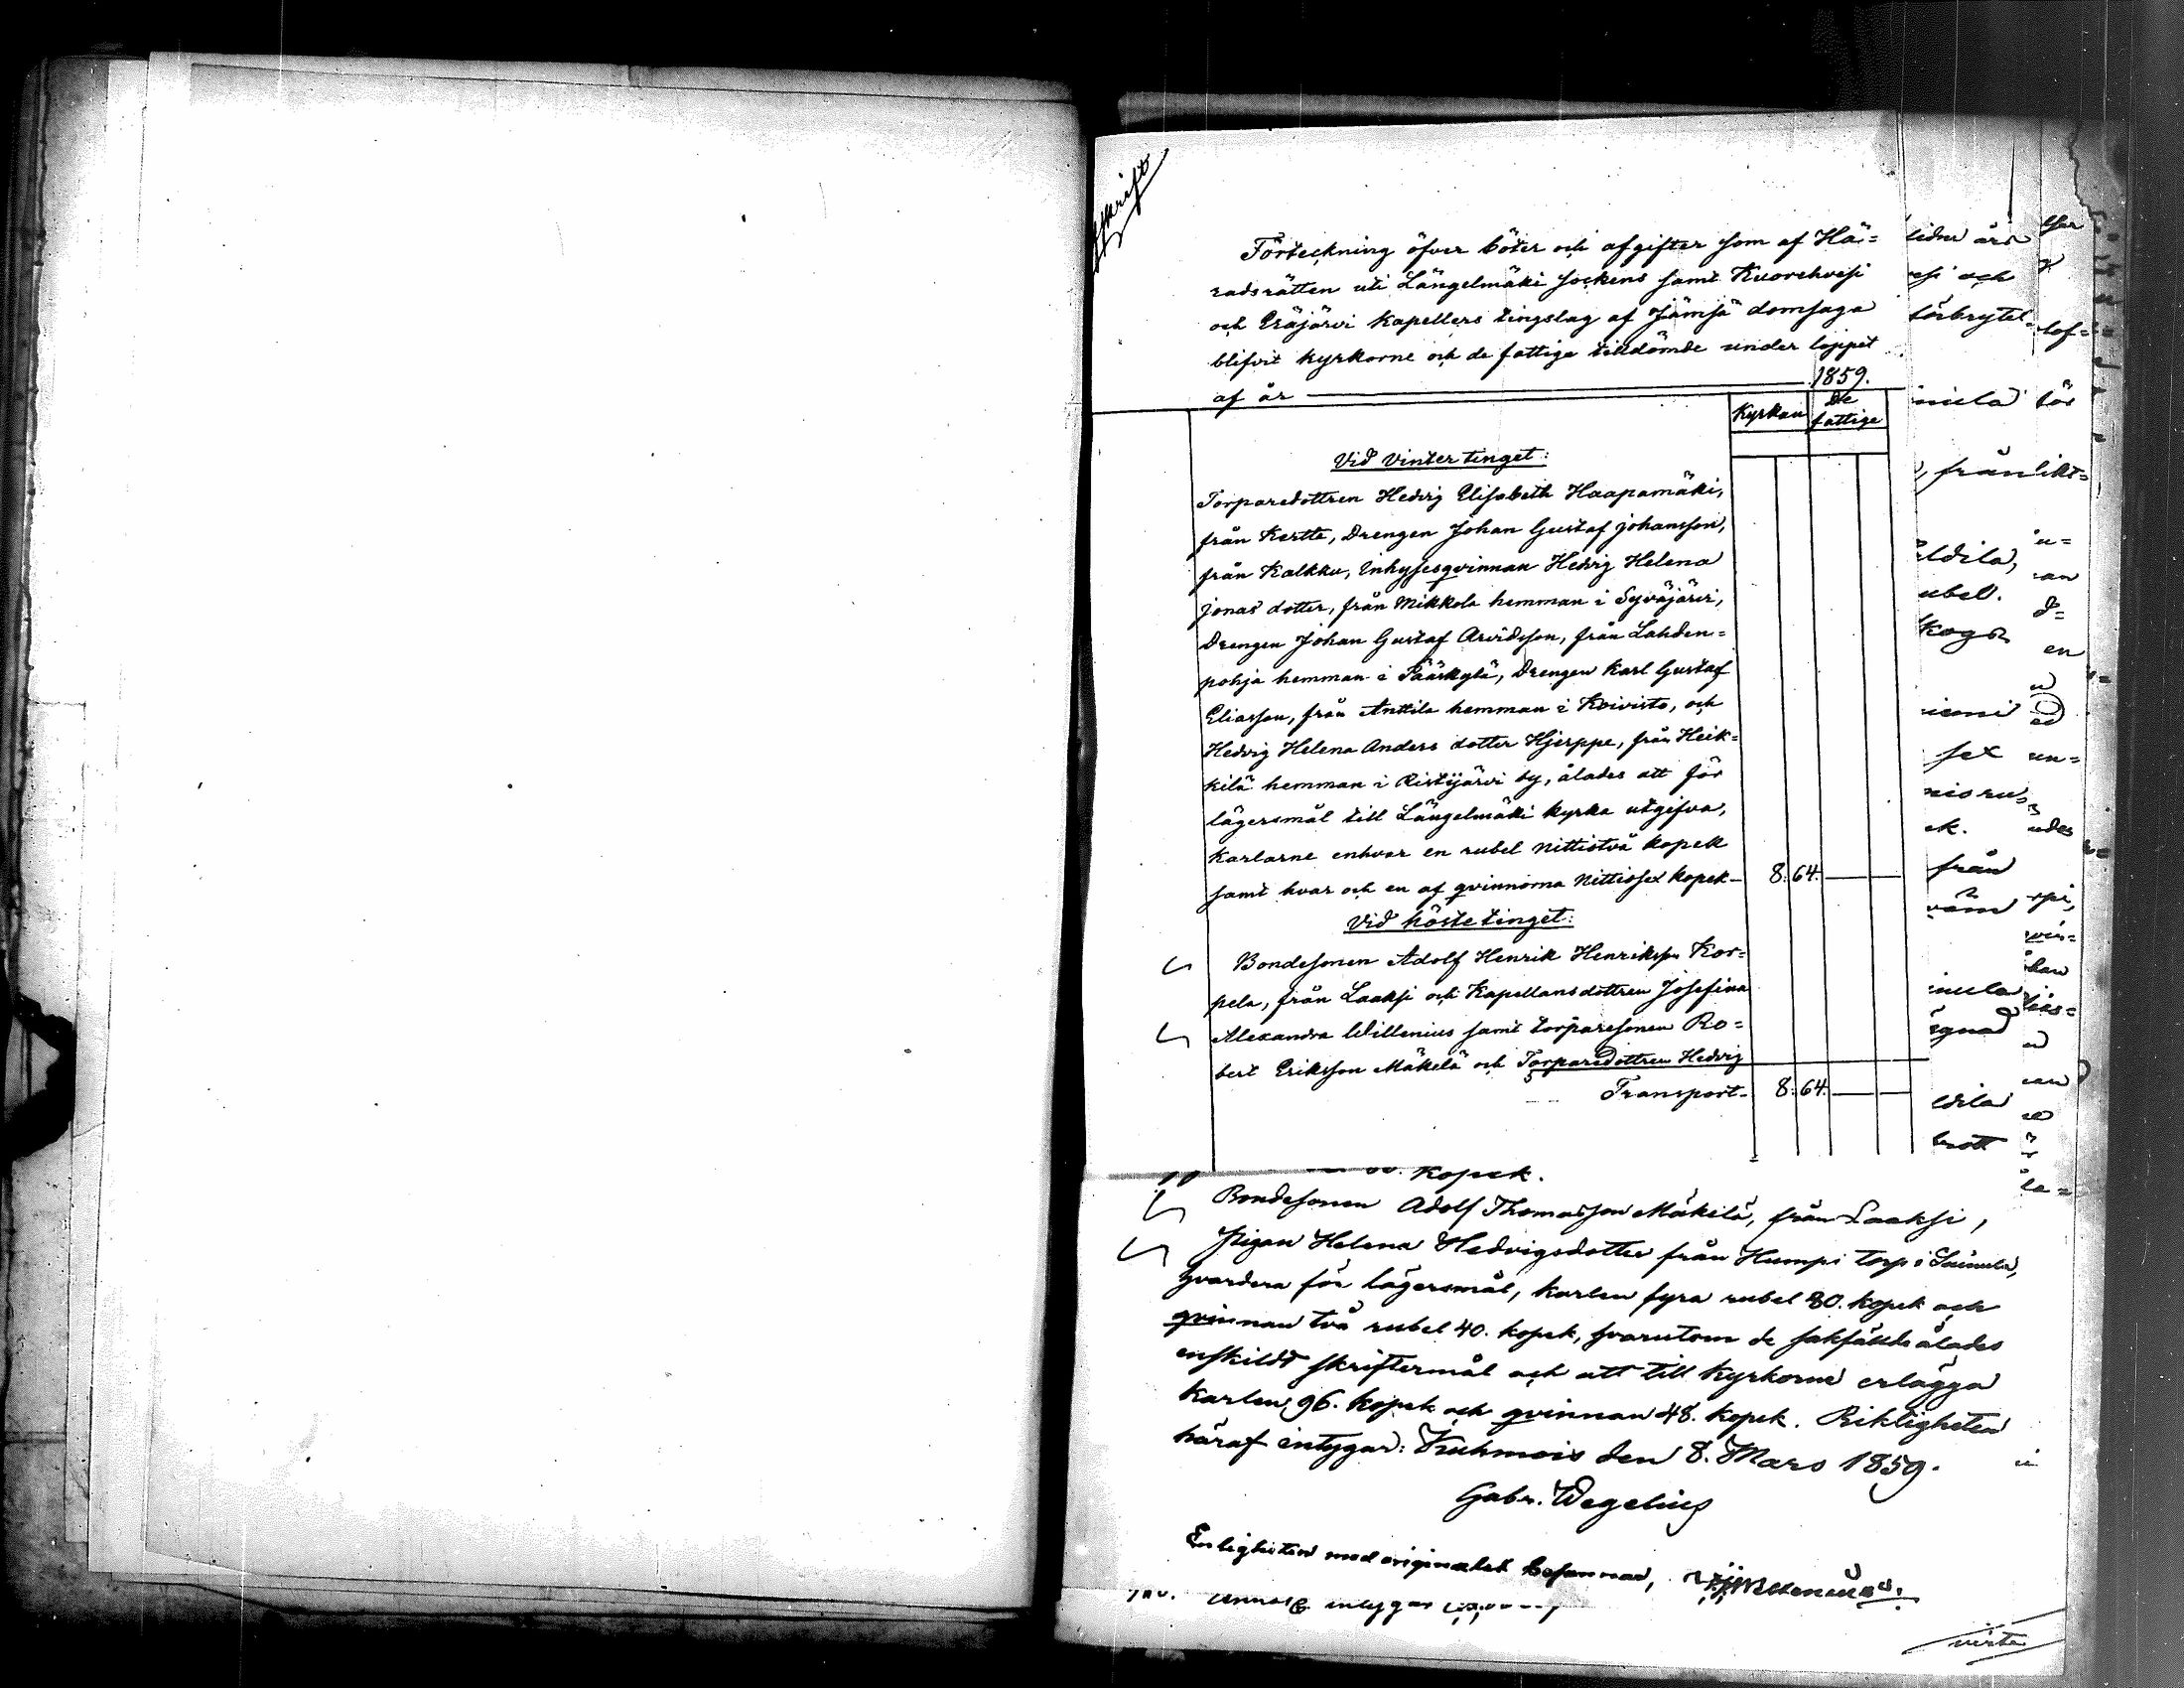 Afskrift
Förteckning öfver böter och afgifter som af Hä=
radsrätten uti Längelmäki sockens samt Kuorehvesi
och Eräjärvi Kapellers tingslag af Jämsä domsaga
blifvit kyrkorne och de fattige tilldömde under loppet
af år 1859.
Kyrkan De fattige
Vid Vintertinget:
Torparedottren Hedvig Elisabeth Haapamäki,
från Kertte, Drengen Johan Gustaf Johansson,
från Kalkku, Inhysesqvinnan Hedvig Helena
Jonas dotter, från Mikkola hemman i Syväjärvi,
Drengen Johan Gustaf Arvidsson, från Lahden=
pohja hemman i Pääskylä, Drengen Karl Gustaf
Eliasson, från Anttila hemman i Koivisto, och
Hedvig Helena Anders dotter Hjerppe, från Heik=
kilä hemman i Ristijärvi by, ålades att för
lägersmål till Längelmäki kyrka utgifva,
Karlarne enhvar en rubel nittiotvå kopek
samt hvar och en af qvinnorna Nittiosex kopek — 8. 64.
Vid höstetinget:
Bondesonen Adolf Henrik Henriksson Kor=
pela, från Laaksi och Kapellansdottren Josefina
Alexandra Willenius samt torparesonen Ro=
bert Eriksson Mäkelä och Torparedottren Hedvig
Transport — 8. 64.
Kopek.
Bondesonen Adolf Thomasson Mäkilä, från Laaksi,
Pigan Helena Hedvigsdotter från Humpi torp i
hvardera för lägersmål, karlen fyra rubel 80. kopek och
qvinnan två rubel 40. kopek, hvarutom de sakfällde ålades
enskildt skriftermål och att till Kyrkorne erlägga
Karlen 96. kopek och qvinnan 48. kopek. Riktigheten
häraf intygar: Kuhmois den 8. Mars 1859.
Gabr. Wegelius
Enligheten med originalet befunnen,
intygar
verte